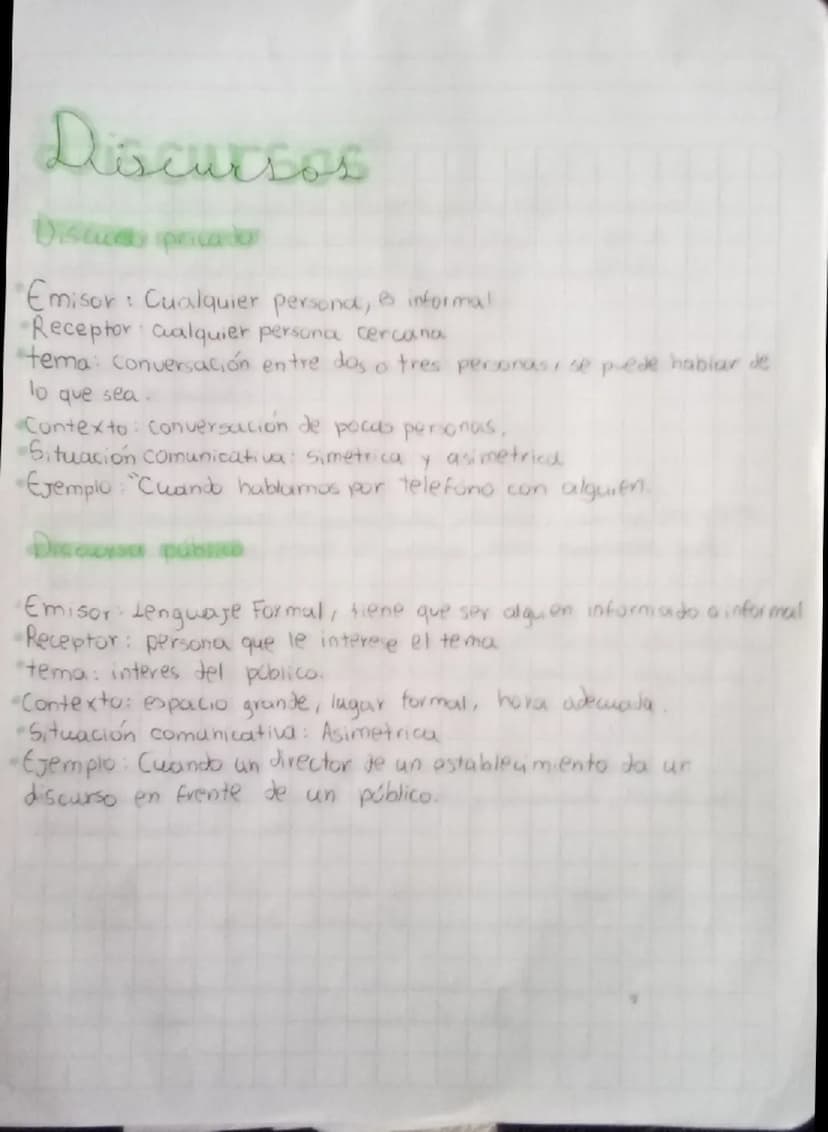 Discursos
Discurso privado
Emisor: Cualquier persona, es informal
Receptor: cualquier persona cercana
tema: conversación entre dos o tres personas, se puede hablar de
lo que sea.
Contexto: conversación de pocas personas.
Situación comunicativa: simetrica y asimetrica
Ejemplo: "Cuando hablamos por telefono con alguien.
Discurso público
Emisor: Lenguaje Formal, tiene que ser alguien informado o informal
Receptor: persona que le interese el tema
tema: interes del público.
Contexto: espacio grande, lugar formal, hora adecuada.
Situación comunicativa: Asimetrica
Ejemplo: Cuando un director de un establecimiento da un
discurso en frente de un público.